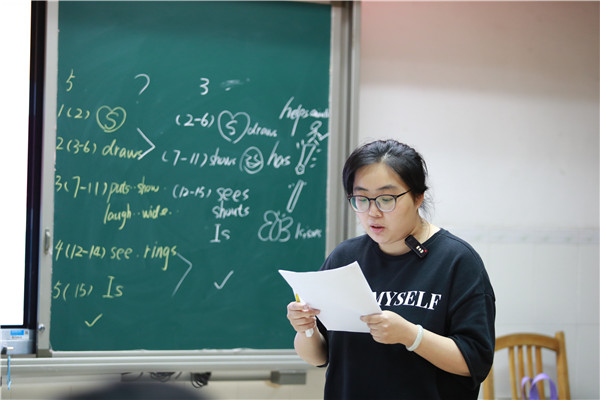 5 ? 3
1 (2) 5
2 (3-6) draws
3 (7-11) puts.. show..
laugh.. wide..
4 (12-14) see.. rings
5 (15) Is
(2-6) 5 draws
(7-11) shows
(12-15) sees
shurts
Is
helps
has
MYSELF